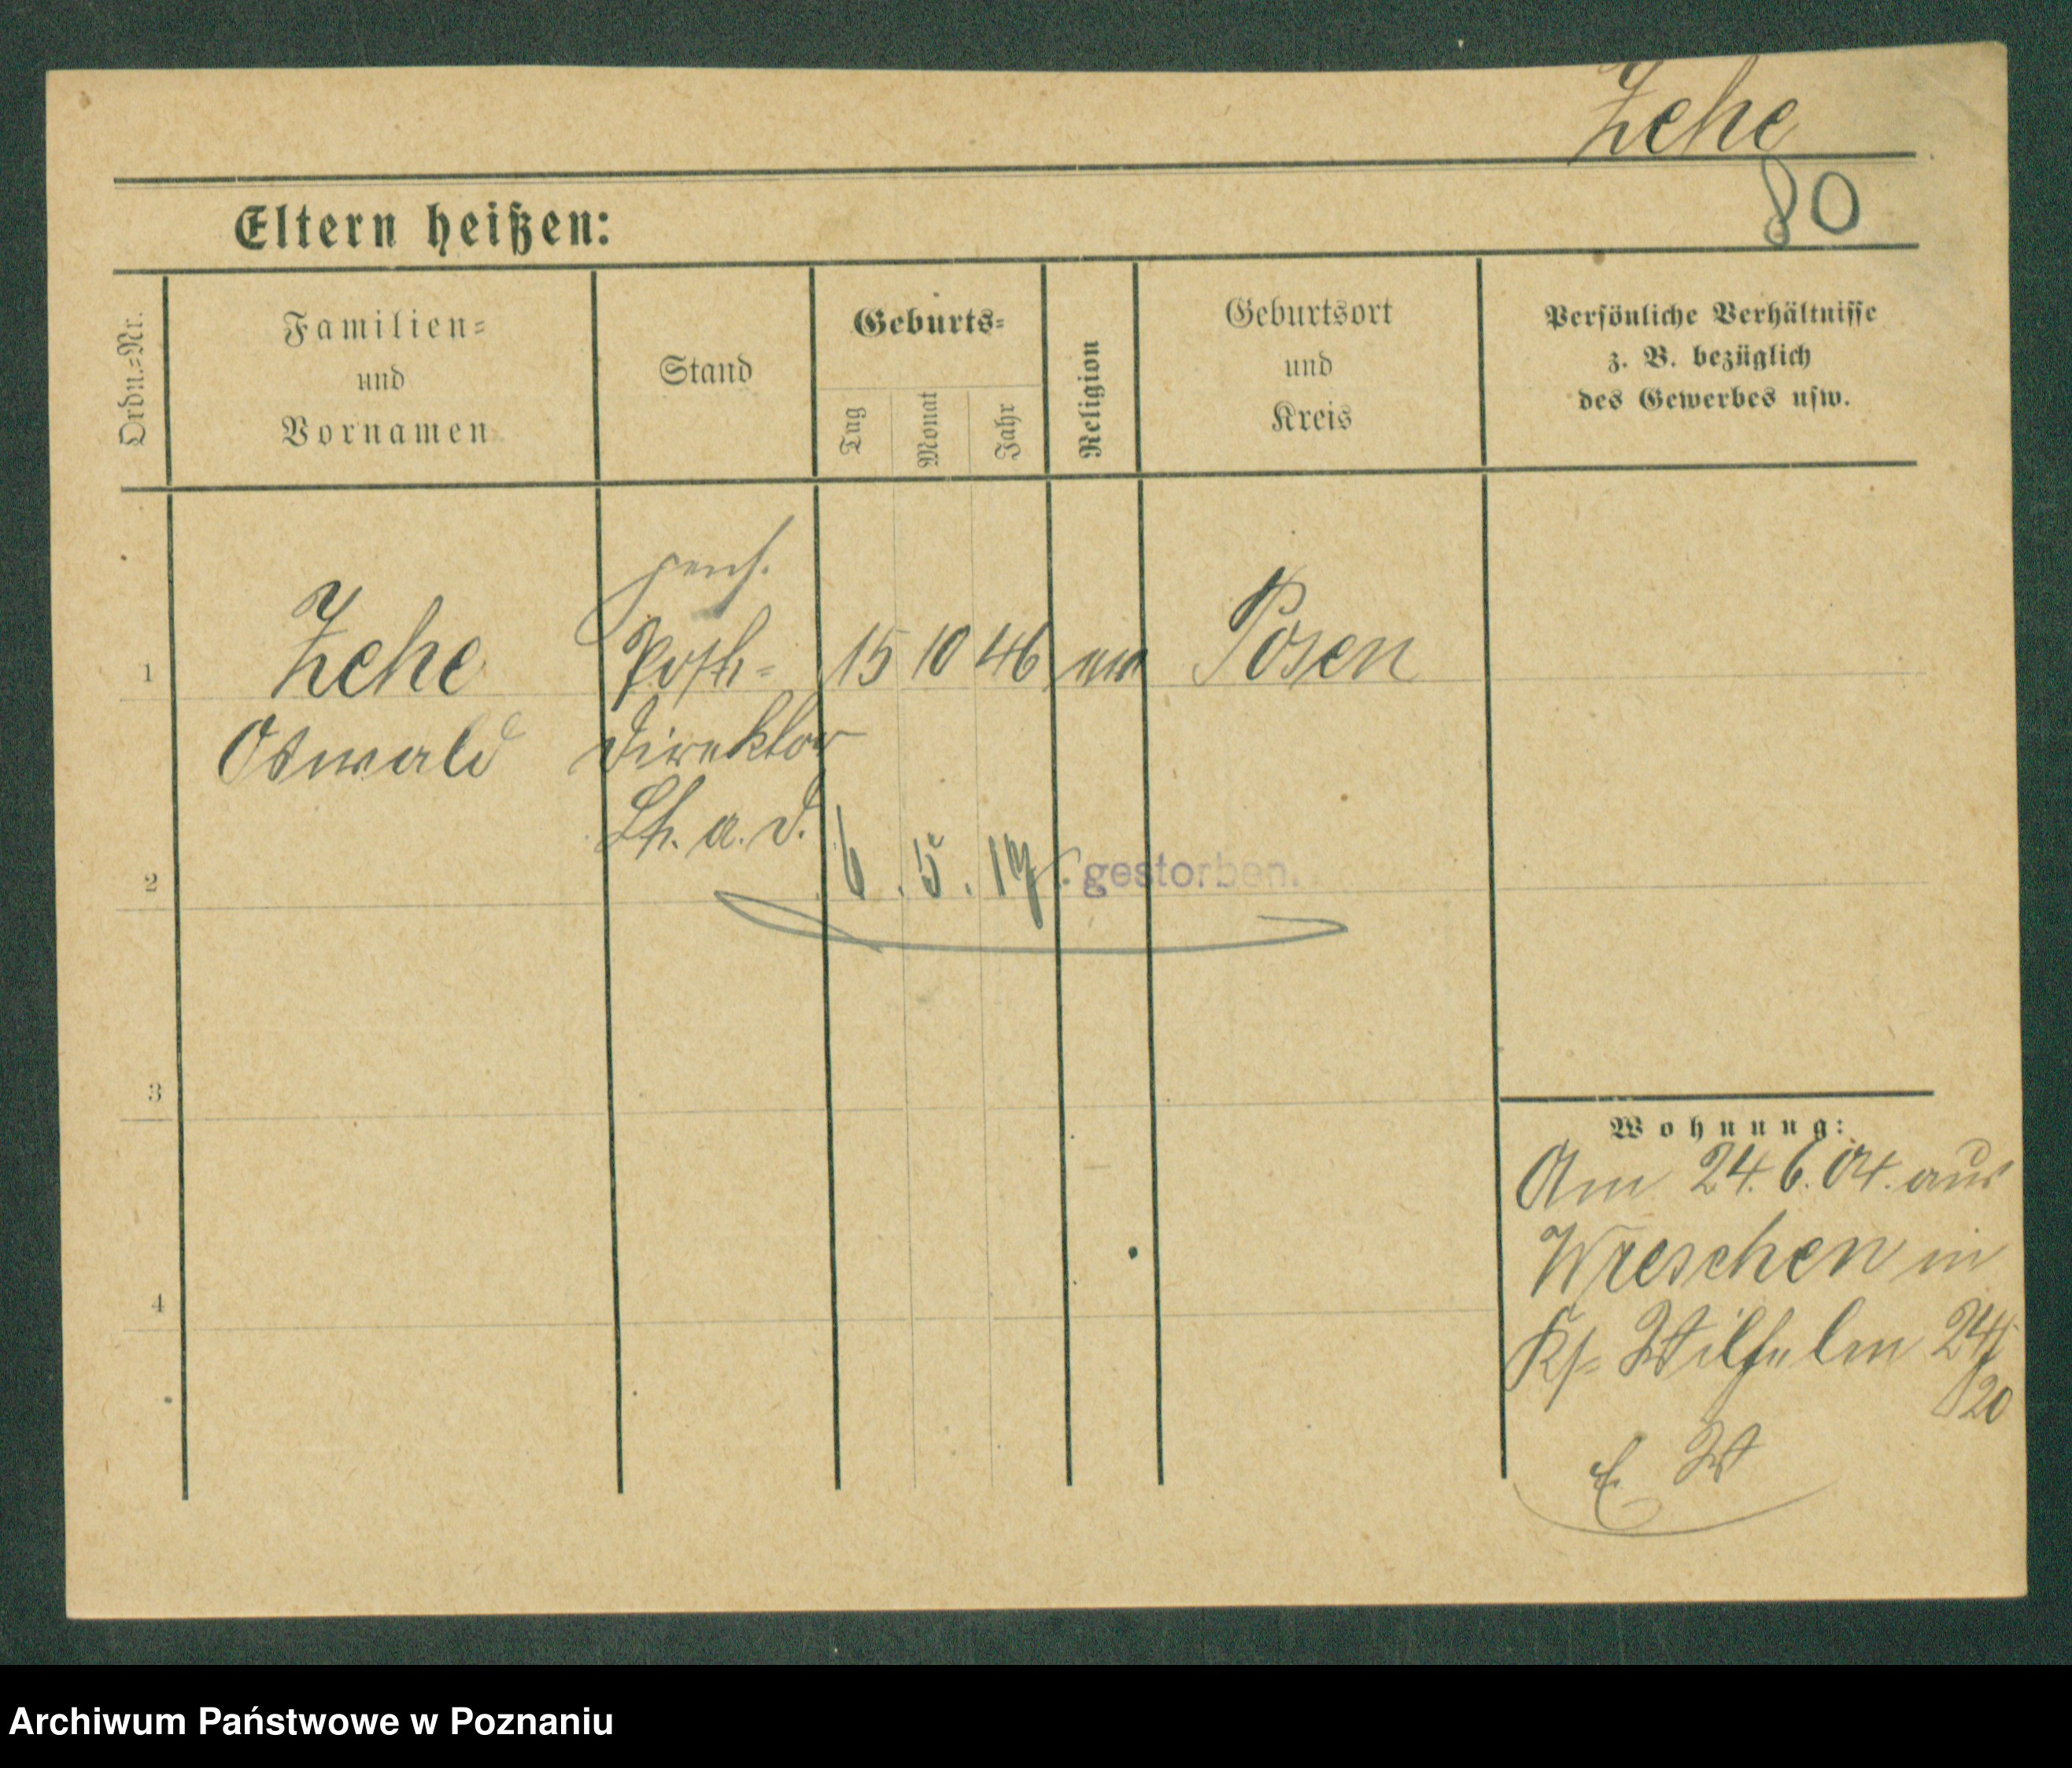 Zehe
80
Eltern heißen:
Ordn.=Nr.
Familien=
und
Vornamen
Stand
Geburts=
Tag
Monat
Jahr
Religion
Geburtsort
und
Kreis
Persönliche Verhältnisse
z. B. bezüglich
des Gewerbes usw.
pens.
1 Zehe Post= 15 10 46 Posen
Oswald Direktor
Lt. a. D.
2 6. 5. 19 gestorben.
3
Wohnung:
Am 24. 6. 04. aus
Wreschen in
4
24/
20
Archiwum Państwowe w Poznaniu